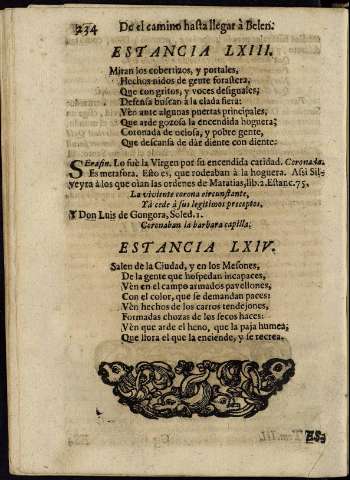 234 De el camino hasta llegar à Belen.
ESTANCIA LXIII.
Miran los cobertizos, y portales,
Hechos nidos de gente forastera,
Que con gritos, y voces desiguales,
Defensa buscan à la elada fiera:
Vèn ante algunas puertas principales,
Que arde gozosa la encendida hoguera;
Coronada de ociosa, y pobre gente,
Que descansa de dàr diente con diente:
SErafin. Lo fuè la Virgen por su encendida caridad. Coronada.
Es metafora. Esto es, que rodeaban à la hoguera. Assi Sil-
veyra à los que oìan las ordenes de Matatias, lib. 2. Estanc. 75.
La viviente corona circunstante,
Yà cede à sus legitimos preceptos.
Y Don Luis de Gongora, Soled. 1.
Coronaban la barbara capilla.
ESTANCIA LXIV.
Salen de la Ciudad, y en los Mesones,
De la gente que hospedan incapaces,
Vèn en el campo armados pavellones,
Con el color, que se demandan paces:
Vèn hechos de los carros tendejones,
Formadas chozas de los secos haces:
Vèn que arde el heno, que la paja humea;
Que llora el que la enciende, y se recrea.
ES-